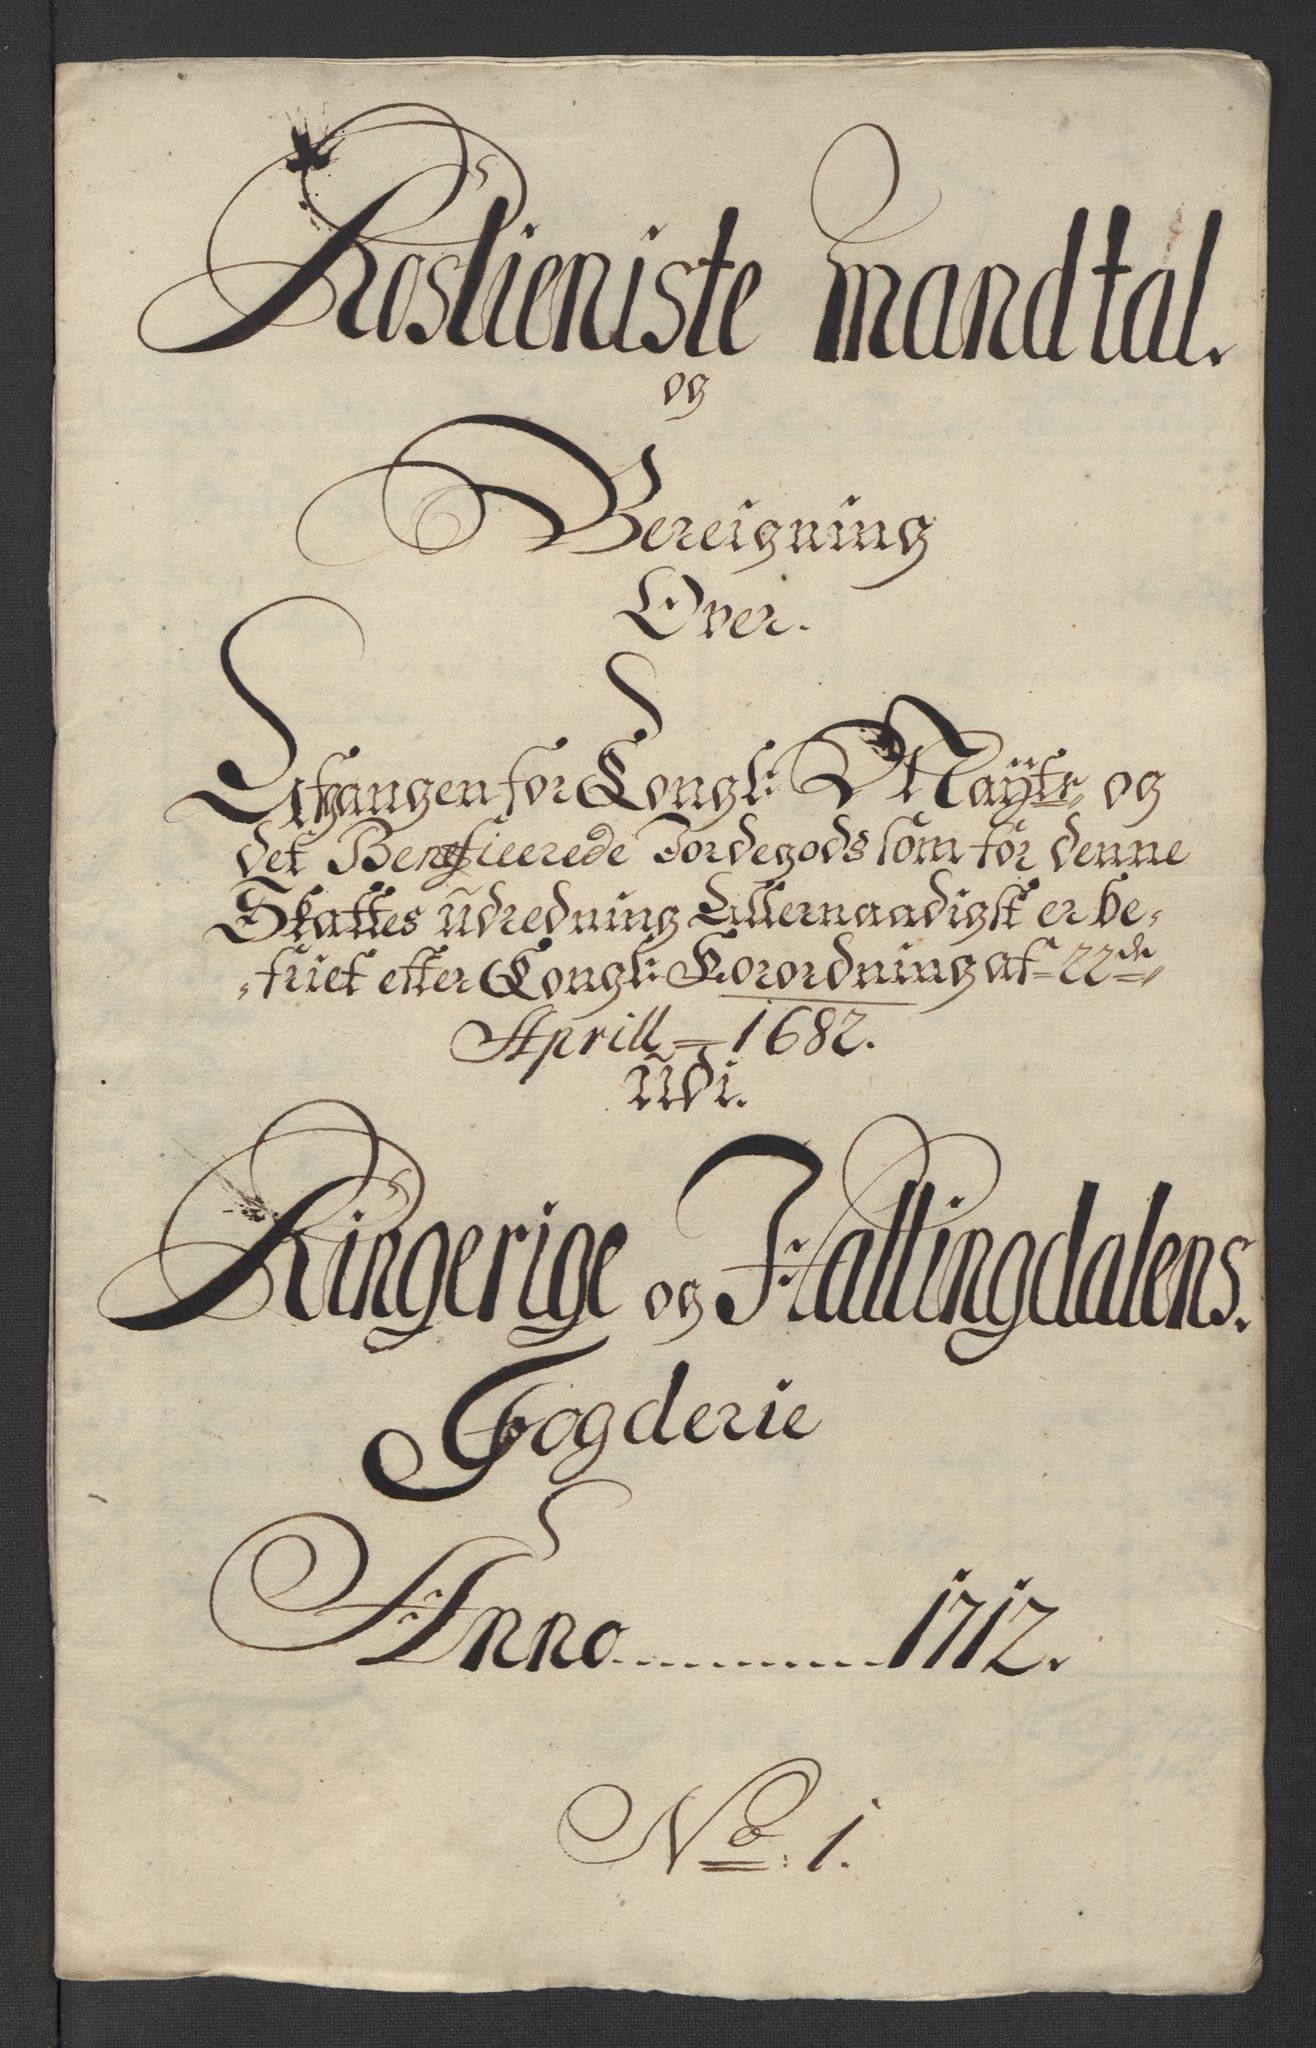 Rostieniste mandtal.
og
Bereigning
Over.
Afgangen for Kongl: Mayts og
det Beneficerede Jordegods som for denne
Skattes ũdredning Allernaadigst er be-
friet efter Kongl: Forordning af 22de
Aprill 1682.
ũdi.
Ringerige og Hallingdalens.
Fogderie
Anno 1712.
No: 1.